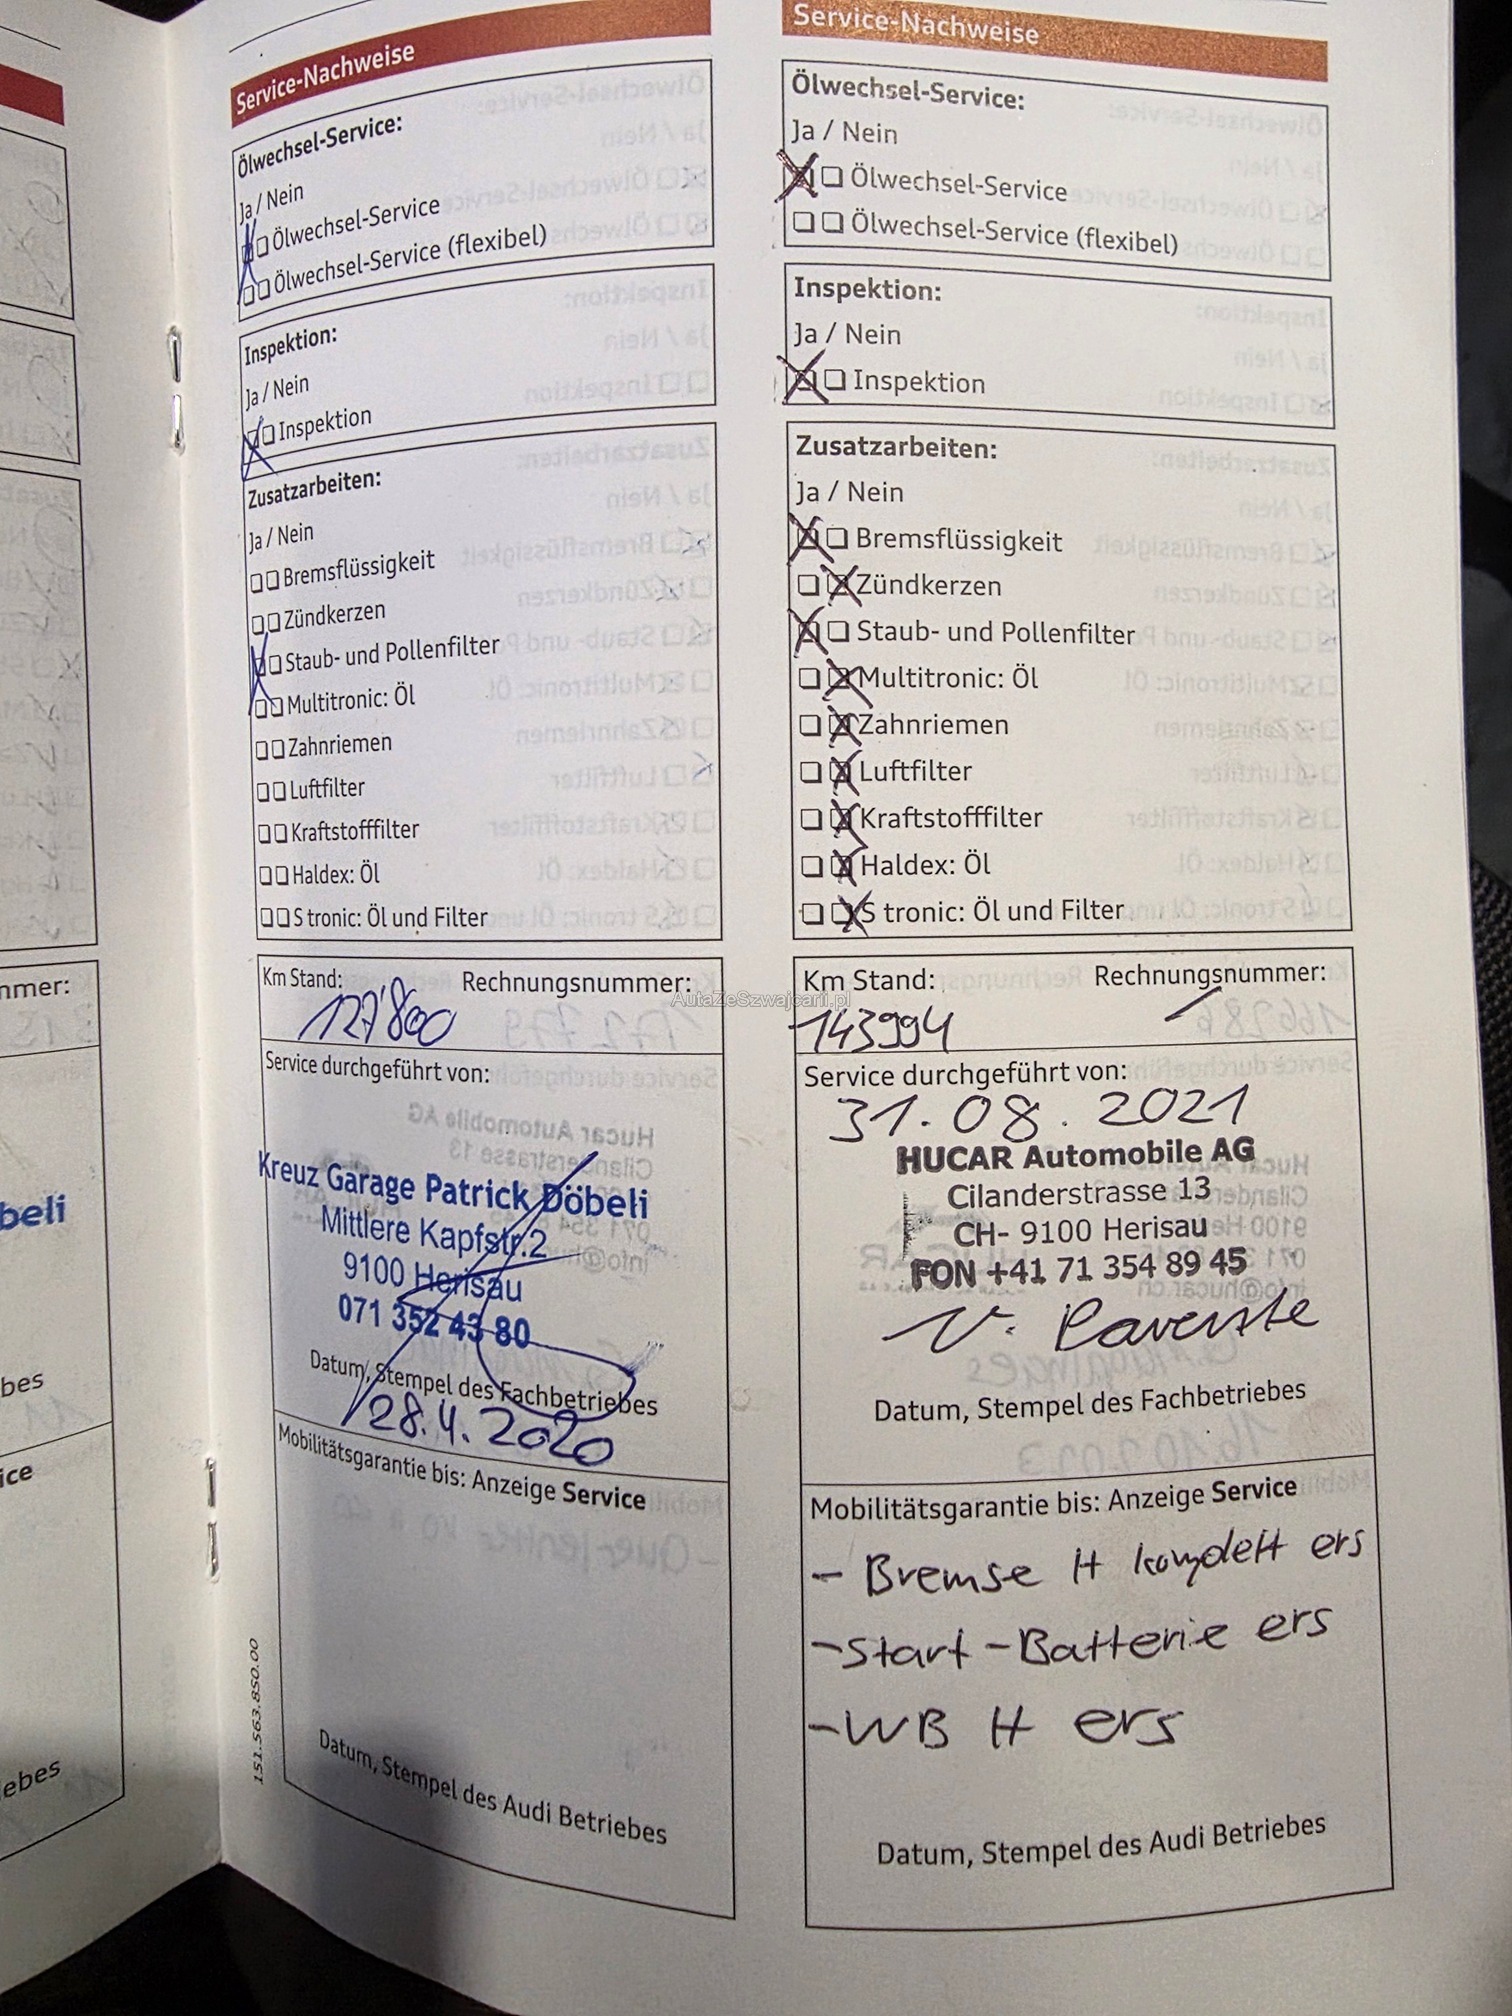 Service-Nachweise
Ölwechsel-Service:
Ja / Nein
Ölwechsel-Service
Ölwechsel-Service (flexibel)
Inspektion:
Ja / Nein
Inspektion
Zusatzarbeiten:
Ja / Nein
Bremsflüssigkeit
Zündkerzen
Staub- und Pollenfilter
Multitronic: Öl
Zahnriemen
Luftfilter
Kraftstofffilter
Haldex: Öl
S tronic: Öl und Filter
Km Stand: Rechnungsnummer:
127'800
Service durchgeführt von:
Kreuz Garage Patrick Döbeli
Mittlere Kapfstr.2
9100 Herisau
071 352 43 80
Datum, Stempel des Fachbetriebes
28.4.2020
Mobilitätsgarantie bis: Anzeige Service
Datum, Stempel des Audi Betriebes
151.563.850.00
Service-Nachweise
Ölwechsel-Service:
Ja / Nein
Ölwechsel-Service
Ölwechsel-Service (flexibel)
Inspektion:
Ja / Nein
Inspektion
Zusatzarbeiten:
Ja / Nein
Bremsflüssigkeit
Zündkerzen
Staub- und Pollenfilter
Multitronic: Öl
Zahnriemen
Luftfilter
Kraftstofffilter
Haldex: Öl
S tronic: Öl und Filter
Km Stand: Rechnungsnummer:
143994
Service durchgeführt von:
31.08.2021
HUCAR Automobile AG
Cilanderstrasse 13
CH- 9100 Herisau
FON +41 71 354 89 45
Datum, Stempel des Fachbetriebes
Mobilitätsgarantie bis: Anzeige Service
- Bremse H komplett ers
- Start-Batterie ers
- WB H ers
Datum, Stempel des Audi Betriebes
AutaZeSzwajcarii.pl